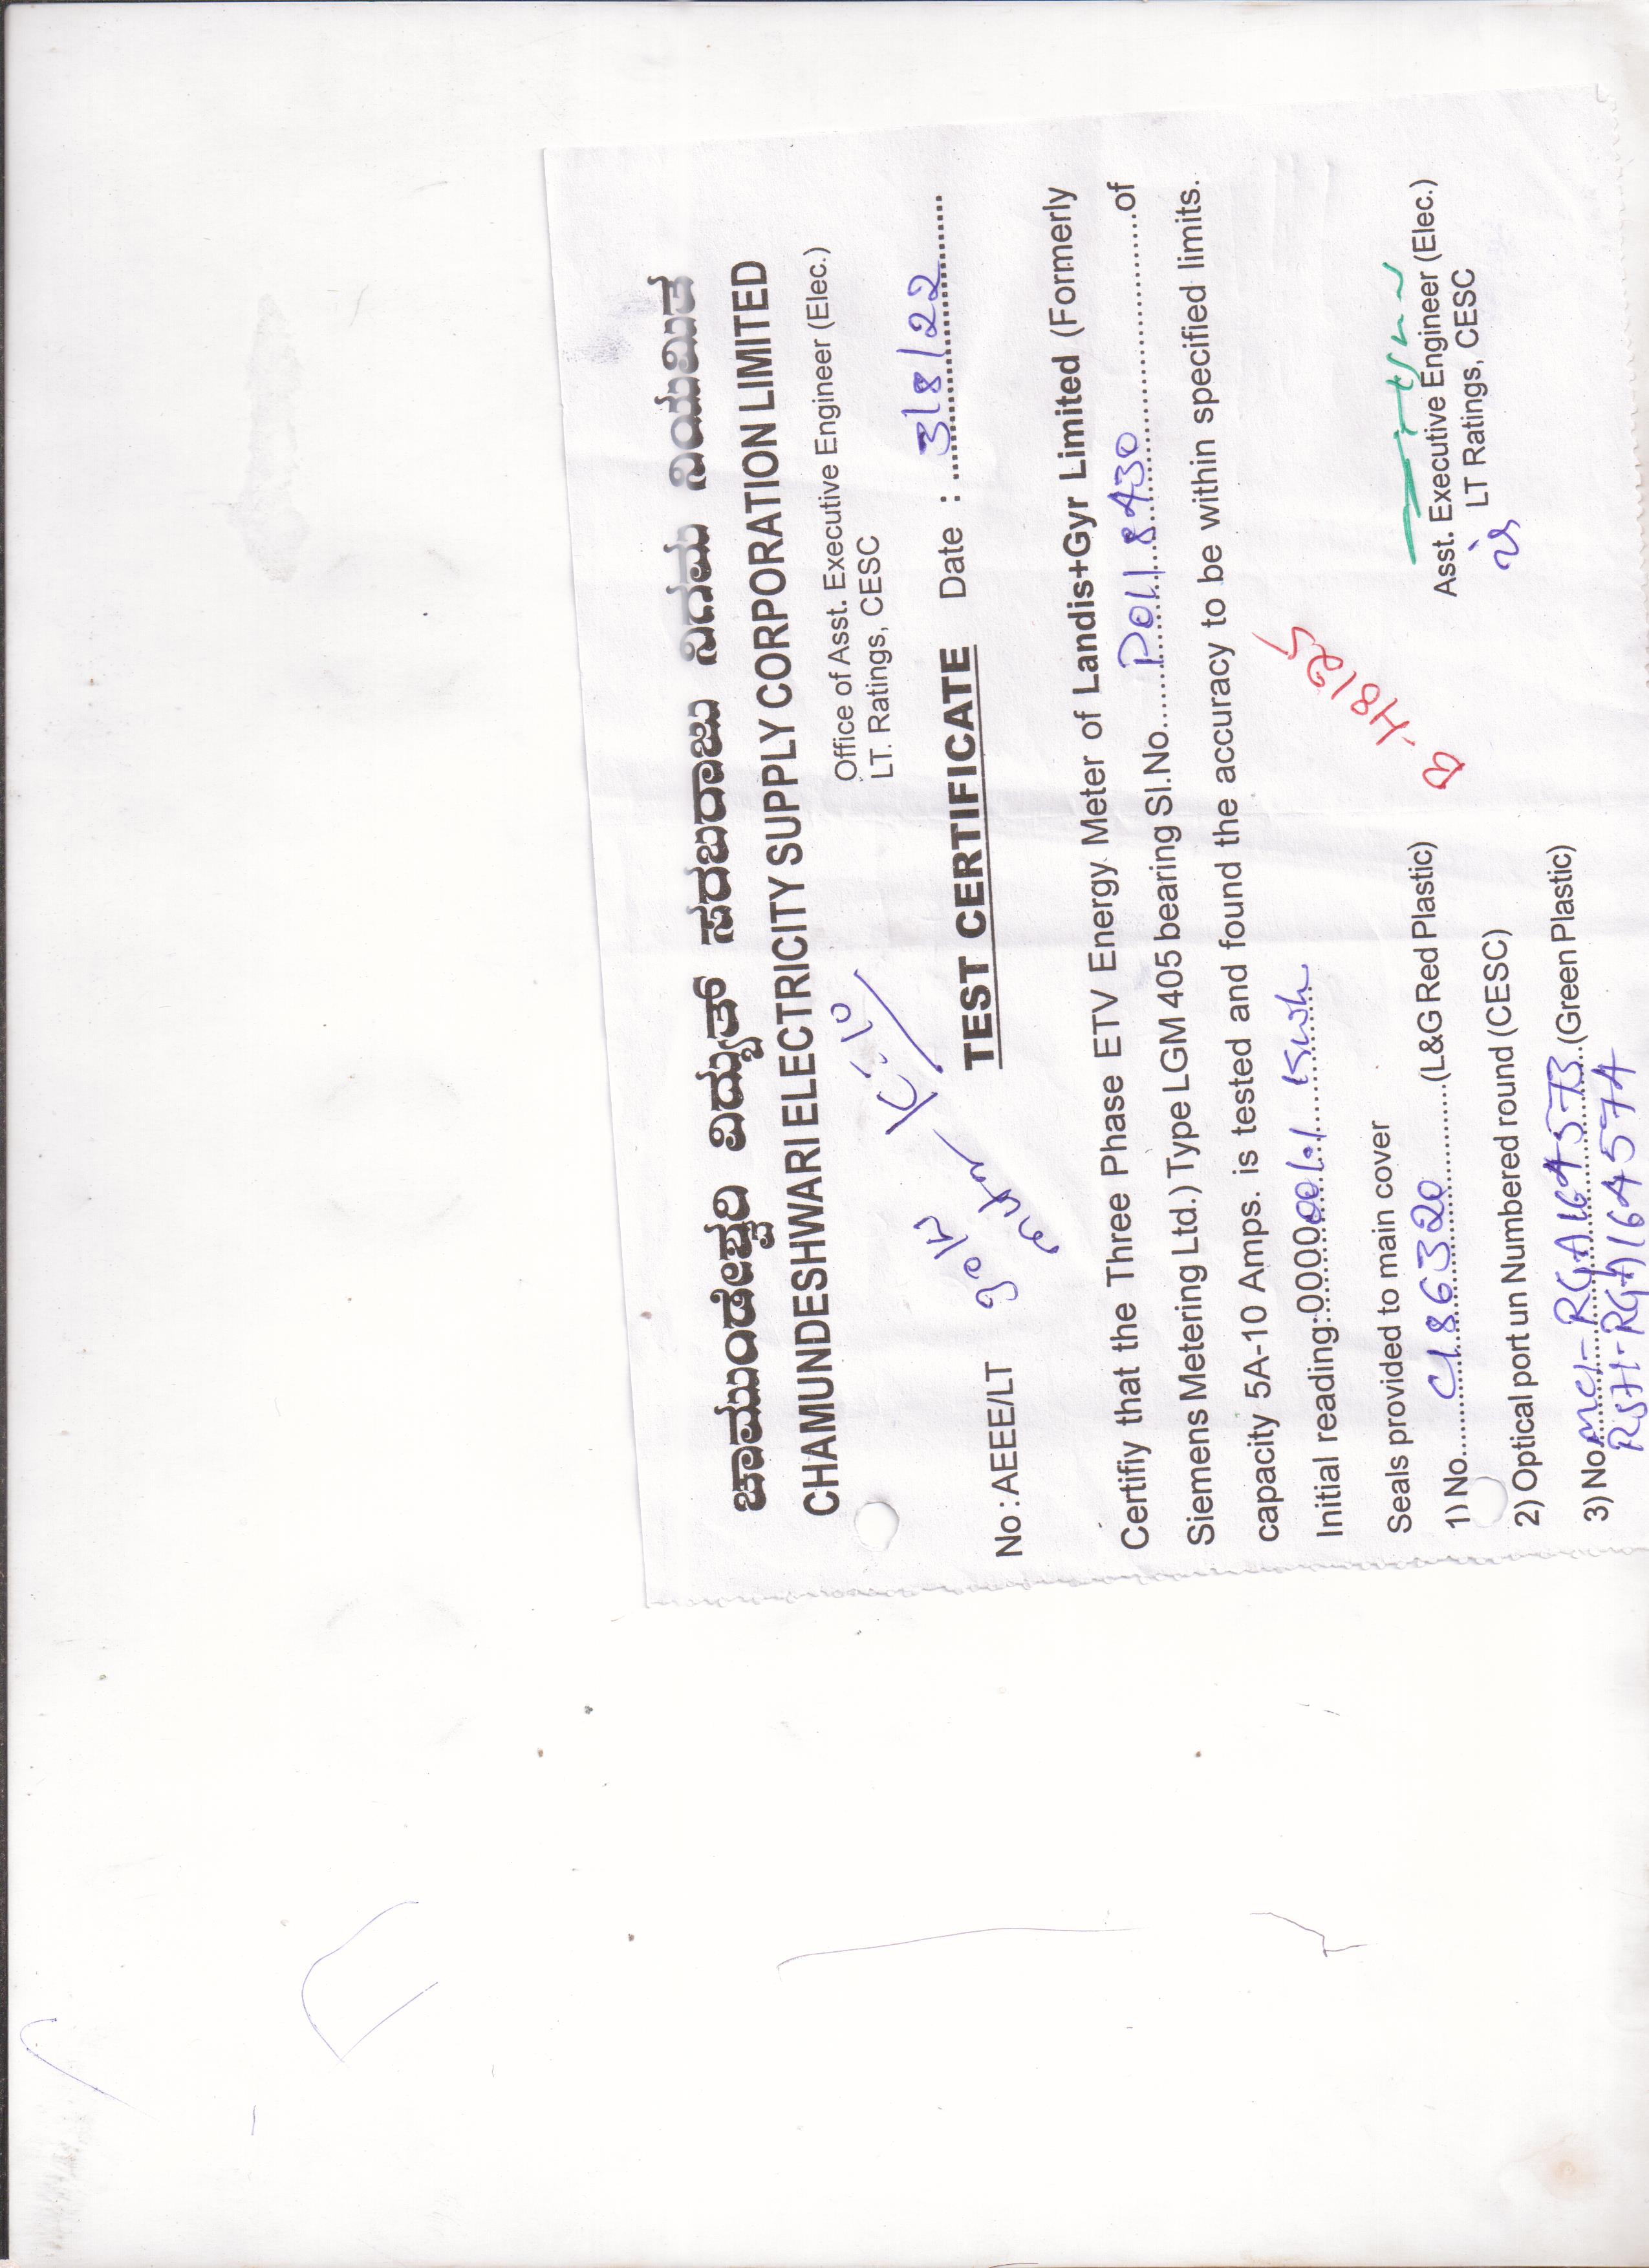 ಚಾಮುಂಡೇಶ್ವರಿ ವಿದ್ಯುತ್ ಸರಬರಾಜು ನಿಗಮ ನಿಯಮಿತ
CHAMUNDESHWARI ELECTRICITY SUPPLY CORPORATION LIMITED
Office of Asst. Executive Engineer (Elec.)
LT. Ratings, CESC
No : AEEE/LT
TEST CERTIFICATE Date : 3/8/22
Certifiy that the Three Phase ETV Energy Meter of Landis+Gyr Limited (Formerly
Siemens Metering Ltd.) Type LGM 405 bearing Sl.No. P0118430 of
capacity 5A-10 Amps. is tested and found the accuracy to be within specified limits.
Initial reading:0000001.1 kwh
Seals provided to main cover
1) No. C186320 (L&G Red Plastic)
2) Optical port un Numbered round (CESC)
3) No. MC1-RGA164573 (Green Plastic)
RGA164574
Asst. Executive Engineer (Elec.)
LT Ratings, CESC